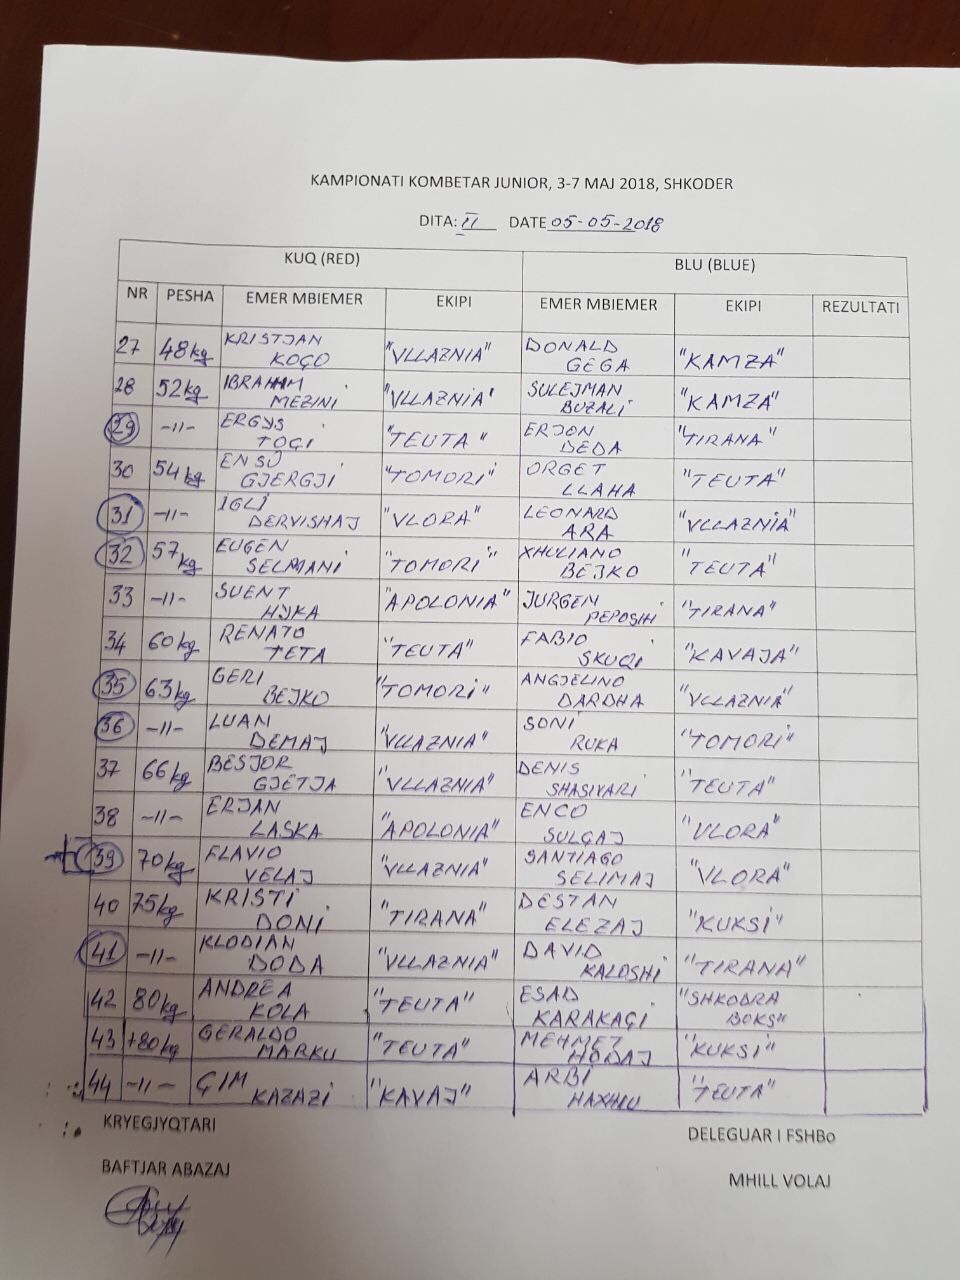 KAMPIONATI KOMBETAR JUNIOR, 3-7 MAJ 2018, SHKODER
DITA: II DATE 05-05-2018
KUQ (RED) BLU (BLUE)
NR PESHA EMER MBIEMER EKIPI EMER MBIEMER EKIPI REZULTATI
27 48kg KRISTJAN KOÇO "VLLAZNIA" DONALD GEGA "KAMZA"
28 52kg IBRAHIM MEZINI "VLLAZNIA" SULEJMAN BUZALI "KAMZA"
29 -11- ERGYS TOÇI "TEUTA" ERJON DEDA "TIRANA"
30 54kg ENSO GJERGJI "TOMORI" ORGET LLAHA "TEUTA"
31 -11- IGLI DERVISHAJ "VLORA" LEONARD ARA "VLLAZNIA"
32 57kg EUGEN SELMANI "TOMORI" XHULIANO BEJKO "TEUTA"
33 -11- SUENT HYKA "APOLONIA" JURGEN PEPOSHI "TIRANA"
34 60kg RENATO TETA "TEUTA" FABIO SKUQI "KAVAJA"
35 63kg GERI BEJKO "TOMORI" ANGJELINO DARDHA "VLLAZNIA"
36 -11- LUAN DEMAJ "VLLAZNIA" SONI RUKA "TOMORI"
37 66kg BESJOR GJETJA "VLLAZNIA" DENIS SHASIVARI "TEUTA"
38 -11- ERJAN LASKA "APOLONIA" ENCO SULÇAJ "VLORA"
39 70kg FLAVIO VELAJ "VLLAZNIA" SANTIAGO SELIMAJ "VLORA"
40 75kg KRISTI DONI "TIRANA" DESTAN ELEZAJ "KUKSI"
41 -11- KLODIAN DODA "VLLAZNIA" DAVID KALOSHI "TIRANA"
42 80kg ANDREA KOLA "TEUTA" ESAD KARAKAÇI "SHKODRA BOKS"
43 +80kg GERALDO MARKU "TEUTA" MEHMET HODAJ "KUKSI"
44 -11- ÇIM KAZAZI "KAVAJ" ARBI HAXHIU "TEUTA"
KRYEGJYQTARI DELEGUAR I FSHBo
BAFTJAR ABAZAJ MHILL VOLAJ